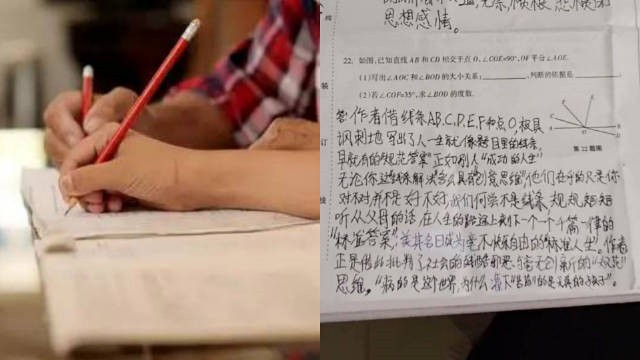 思想感情。
22. 如图,已知直线AB和CD相交于点O,∠COE=90°,OF平分∠AOE.
(1)写出∠AOC和∠BOD的大小关系: ,判断的依据是
(2)若∠COF=35°,求∠BOD的度数.
答:作者借线条A,B,C,D,E,F和点O,极具
讽刺地写出了人一生就像题目里的线条,
早就有的"规范答案"正如别人"成功的人生"
无论你这样解决会么具有创意思维"他们在乎的只是你
对不对,并不是好不好,我们何尝不是线条,规规矩矩
听从父母的话,在人生的轨道上刻下一个一个千篇一律的
"标准答案",美其名曰成为毫不快乐自由的"标准人生"。作者
正是借此批判了社会的 创新的"规范"
思维。"病的是这个世界,为什么 的是 的孩子"。
第22题图
装
订
线